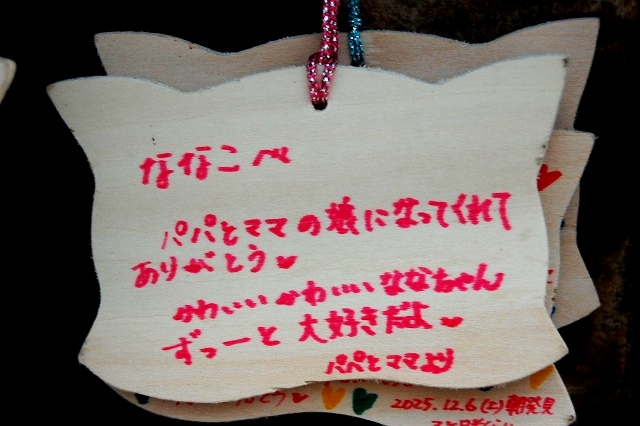 ななこへ
パパとママの娘になってくれて
ありがとう♥
かわいいかわいいななちゃん
ずっーと大好きだよ♥
パパとママより
2025.12.6(土)朝発見